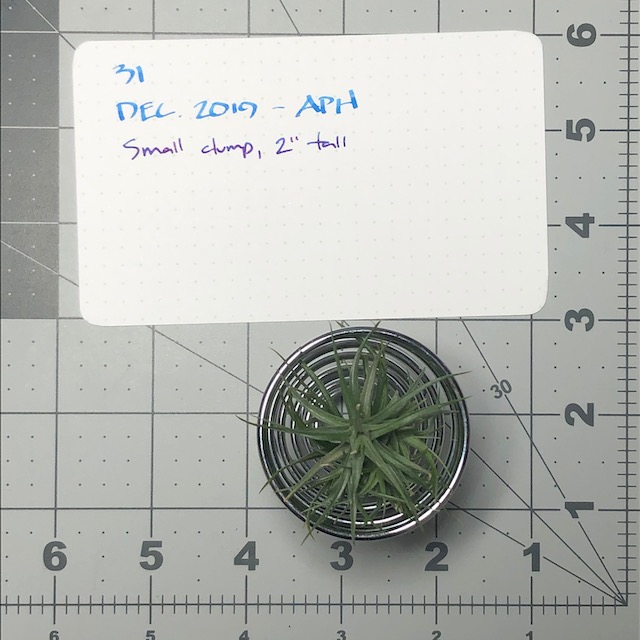 31
DEC. 2019 - APH
Small clump, 2" tall
6
5
4
3
2
1
30
6 5 4 3 2 1
6 5 4 3 2 1